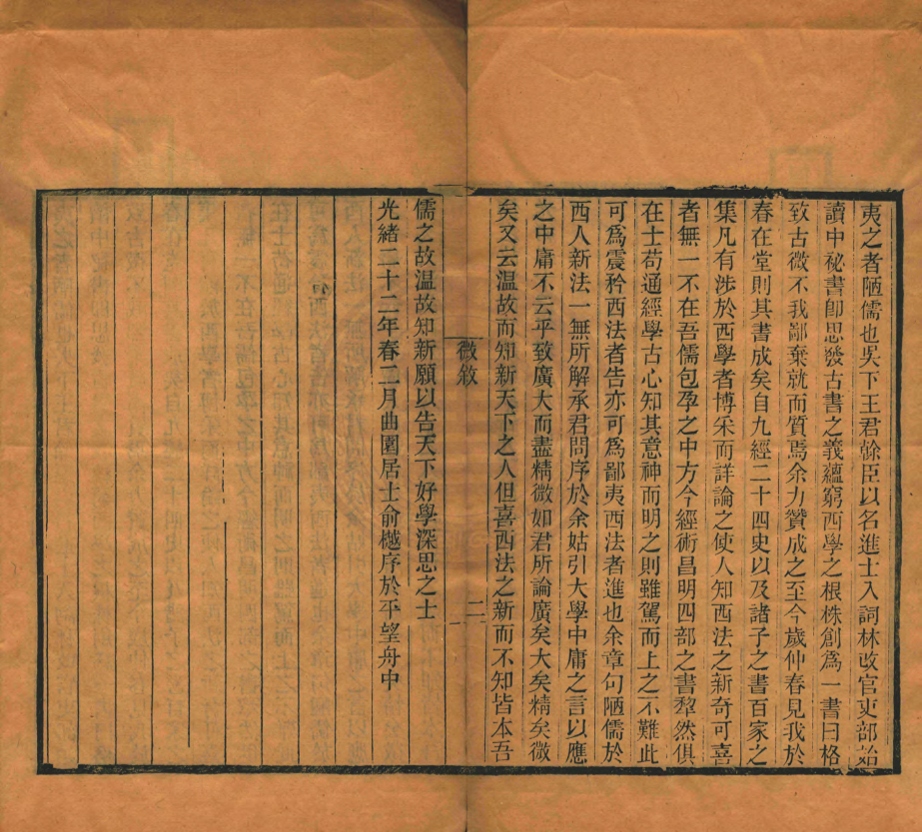 夷之者陋儒也吳下王君榦臣以名進士入詞林改官吏部始
讀中祕書卽思發古書之義蘊窮西學之根株創爲一書曰格
致古微不我鄙棄就而質焉余力贊成之至今歲仲春見我於
春在堂則其書成矣自九經二十四史以及諸子之書百家之
集凡有涉於西學者博采而詳論之使人知西法之新奇可喜
者無一不在吾儒包孕之中方今經術昌明四部之書犂然俱
在士苟通經學古心知其意神而明之則雖駕而上之不難此
可爲震矜西法者告亦可爲鄙夷西法者進也余章句陋儒於
西人新法一無所解承君問序於余姑引大學中庸之言以應
之中庸不云乎致廣大而盡精微如君所論廣矣大矣精矣微
矣又云温故而知新天下之人但喜西法之新而不知皆本吾
微敘
二
儒之故温故知新願以告天下好學深思之士
光緒二十二年春二月曲園居士俞樾序於平望舟中